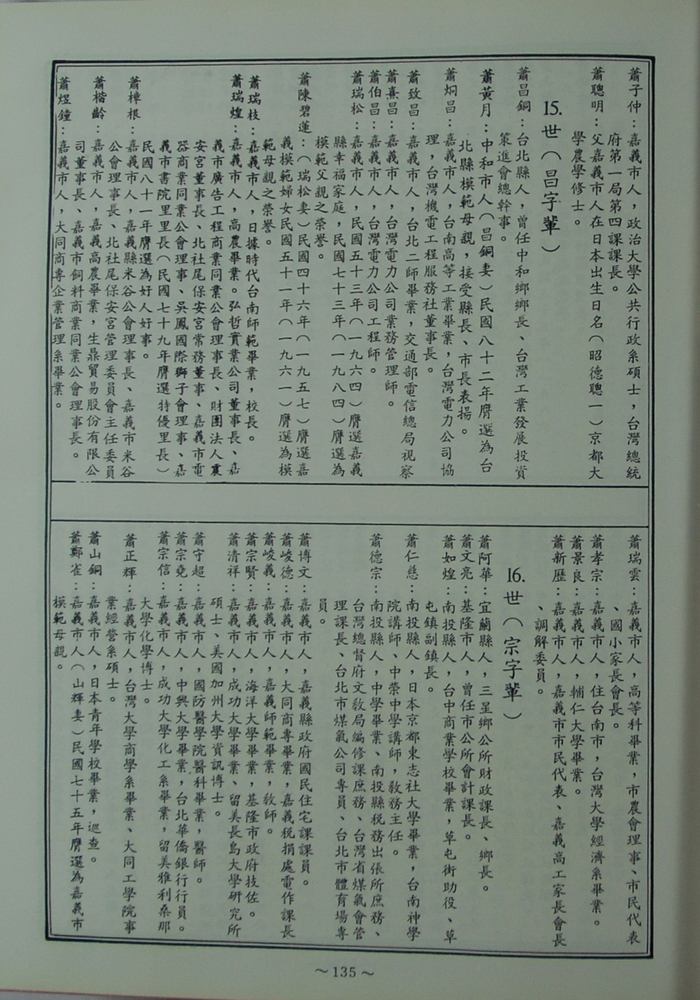 蕭子仲：嘉義市人，政治大學公共行政系碩士，台灣總統
府第一局第四課課長。
蕭聰明：父嘉義市人在日本出生日名（昭德聰一）京都大
學農學修士。
15.世（昌字輩）
蕭昌銅：台北縣人，曾任中和鄉鄉長、台灣工業發展投資
策進會總幹事。
蕭黃月：中和市人（昌銅妻）民國八十二年膺選為台
北縣模範母親，接受縣長、市長表揚。
蕭炯昌：嘉義市人，台南高等工業畢業，台灣電力公司協
理，台灣機電工程服務社董事長。
蕭致昌：嘉義市人，台北二師畢業，交通部電信總局視察
蕭熹昌：嘉義市人，台灣電力公司業務管理師。
蕭伯昌：嘉義市人，台灣電力公司工程師。
蕭瑞松：嘉義市人，民國五十三年（一九六四）膺選嘉義
縣幸福家庭，民國七十三年（一九八四）膺選為
模範父親之榮譽。
蕭陳碧蓮：（瑞松妻）民國四十六年（一九五七）膺選嘉
義模範婦女民國五十一年（一九六一）膺選為模
範母親之榮譽。
蕭瑞枝：嘉義市人，日據時代台南師範畢業，校長。
蕭瑞煌：嘉義市人，高農畢業。弘哲實業公司董事長、嘉
義市廣告工程商業同業公會理事長、財團法人震
安宮董事長、北社尾保安宮常務董事、嘉義市電
器商業同業公會理事、吳鳳國際獅子會理事、嘉
義市書院里里長（民國七十九年膺選特優里長）
民國八十一年膺選為好人好事。
蕭樟根：嘉義市人，嘉義縣米谷公會理事長、嘉義市米谷
公會理事長、北社尾保安宮管理委員會主任委員
蕭楷齡：嘉義市人，嘉義高農畢業，生鼎貿易股份有限公
司董事長、嘉義市飼料商業同業公會理事長。
蕭煜鐘：嘉義市人，大同商專企業管理系畢業。
蕭瑞雲：嘉義市人，高等科畢業，市農會理事、市民代表
、國小家長會長。
蕭孝宗：嘉義市人，住台南市，台灣大學經濟系畢業。
蕭景良：嘉義市人，輔仁大學畢業。
蕭新歷：嘉義市人，嘉義市市民代表、嘉義高工家長會長
、調解委員。
16.世（宗字輩）
蕭阿華：宜蘭縣人，三星鄉公所財政課長、鄉長。
蕭文亮：基隆市人，曾任市公所會計課長。
蕭如煌：南投縣人，台中商業學校畢業，草屯街助役、草
屯鎮副鎮長。
蕭仁慈：南投縣人，日本京都東志社大學畢業，台南神學
院講師、中榮中學講師，教務主任。
蕭德宗：南投縣人，中學畢業、南投縣稅務出張所庶務、
台灣總督府文教局編修課庶務、台灣省煤氣會管
理課長、台北市煤氣公司專員、台北市體育場專
員。
蕭博文：嘉義市人，嘉義縣政府國民住宅課課員。
蕭峻德：嘉義市人，大同商專畢業，嘉義稅捐處電作課長
蕭峻義：嘉義市人，嘉義師範畢業，教師。
蕭宗賢：嘉義市人，海洋大學畢業，基隆市政府技佐。
蕭清祥：嘉義市人，成功大學畢業、留美長島大學研究所
碩士、美國加州大學資訊博士。
蕭守超：嘉義市人，國防醫學院醫科畢業，醫師。
蕭宗堯：嘉義市人，中興大學畢業，台北華僑銀行行員。
蕭宗信：嘉義市人，成功大學化工系畢業，留美雅利桑那
大學化學博士。
蕭正輝：嘉義市人，台灣大學商學系畢業、大同工學院事
業經營系碩士。
蕭山銅：嘉義市人，日本青年學校畢業，巡查。
蕭鄭雀：嘉義市人（山輝妻）民國七十五年膺選為嘉義市
模範母親。
～135～